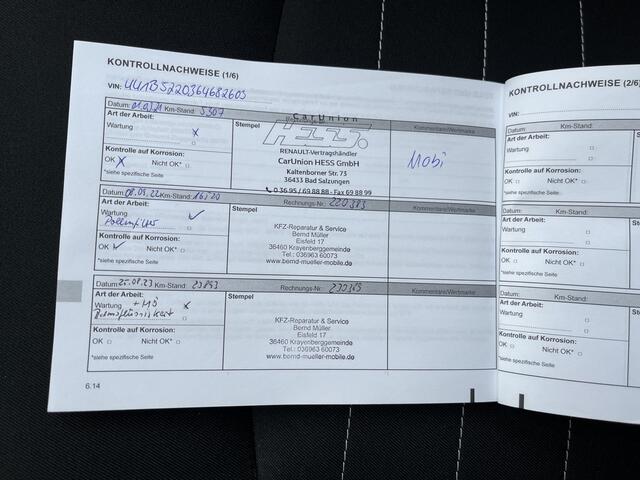 KONTROLLNACHWEISE (1/6)
VIN: UU1B5220364682603
Datum: 01.03.21 Km-Stand: 5307
Art der Arbeit:
Wartung x
Kontrolle auf Korrosion:
OK x Nicht OK* □
*siehe spezifische Seite
Stempel
CarUnion
HESS.
RENAULT-Vertragshändler
CarUnion HESS GmbH
Kaltenborner Str. 73
36433 Bad Salzungen
0 36 95 / 69 88 88 - Fax 69 88 99
Kommentare/Wertmarke
Mobi
Datum: 08.09.22 Km-Stand: 16120
Rechnungs-Nr.: 220383
Art der Arbeit:
Wartung ✓
Pollenfilter □
Kontrolle auf Korrosion:
OK ✓ Nicht OK* □
*siehe spezifische Seite
KFZ-Reparatur & Service
Bernd Müller
Eisfeld 17
36460 Krayenberggemeinde
Tel.: 036963 60073
www.bernd-mueller-mobile.de
Datum: 25.08.23 Km-Stand: 23893
Rechnungs-Nr.: 230365
Kommentare/Wertmarke
Art der Arbeit:
Wartung + MÖ x
Bremsflüssigkeit □
Kontrolle auf Korrosion:
OK □ Nicht OK* □
*siehe spezifische Seite
Stempel
KFZ-Reparatur & Service
Bernd Müller
Eisfeld 17
36460 Krayenberggemeinde
Tel.: 036963 60073
www.bernd-mueller-mobile.de
6.14
KONTROLLNACHWEISE (2/6)
VIN:
Datum: Km-Stand:
Art der Arbeit:
Wartung □
Kontrolle auf Korrosion:
OK □ Nicht OK* □
*siehe spezifische Seite
Datum: Km-Stand:
Art der Arbeit:
Wartung □
Kontrolle auf Korrosion:
OK □ Nicht OK* □
*siehe spezifische Seite
Datum: Km-Stand:
Art der Arbeit:
Wartung □
Kontrolle auf Korrosion:
OK □ Nicht OK* □
*siehe spezifische Seite